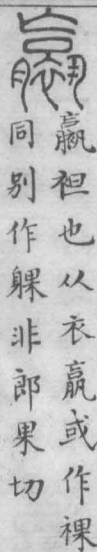 𧝹
𧝹袒也从衣𦝠或作裸
同別作躶非郎果切